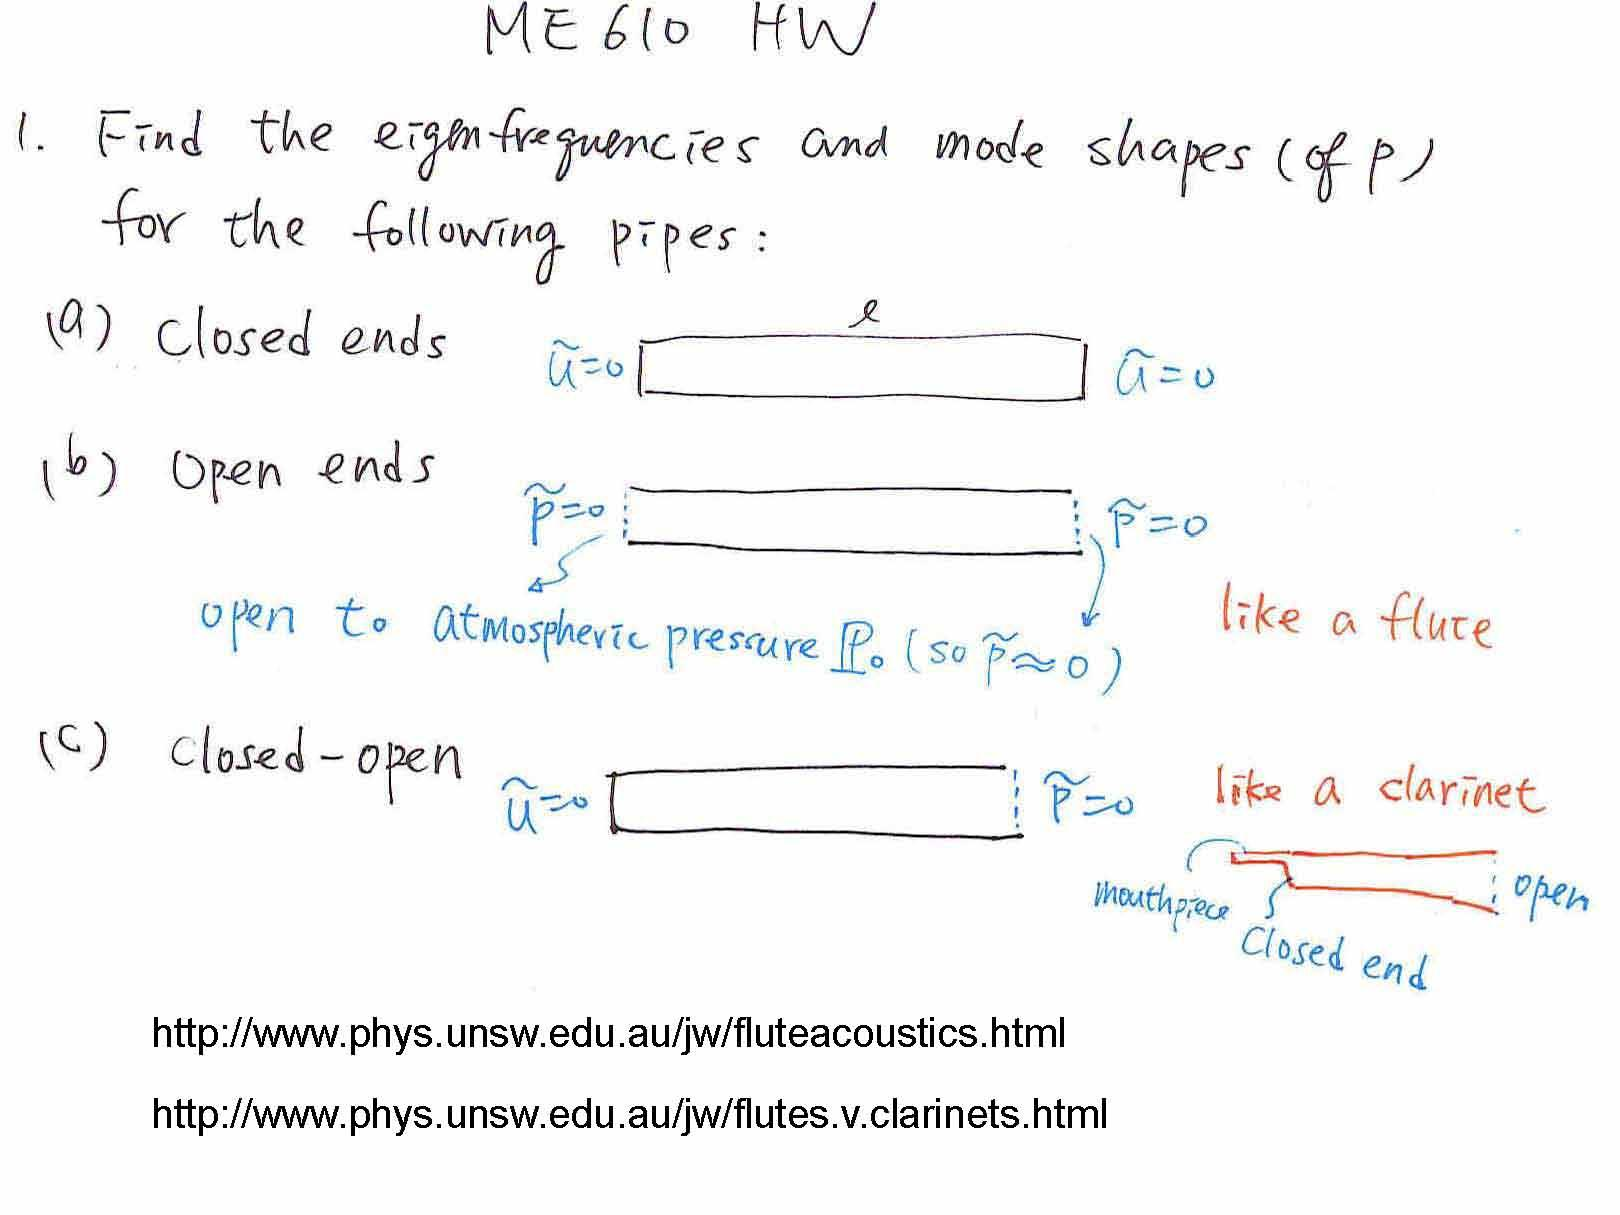 ME 610 HW
1. Find the eigenfrequencies and mode shapes (of p)
for the following pipes:
(a) Closed ends
ℓ
ũ=0
ũ=0
(b) Open ends
p̃=0
p̃=0
open to atmospheric pressure ℙ₀ (so p̃≈0)
like a flute
(c) Closed-open
ũ=0
p̃=0
like a clarinet
mouthpiece
Closed end
open
http://www.phys.unsw.edu.au/jw/fluteacoustics.html
http://www.phys.unsw.edu.au/jw/flutes.v.clarinets.html